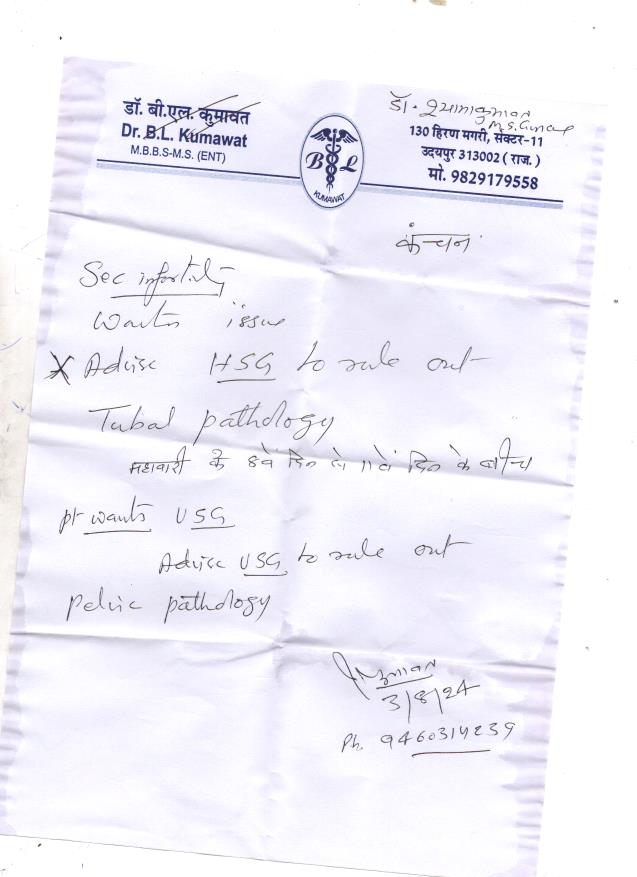 डॉ. बी.एल. कुमावत
Dr. B.L. Kumawat
M.B.B.S-M.S. (ENT)
B L
KUMAWAT
डॉ.
M.S.
130 हिरण मगरी, सेक्टर-11
उदयपुर 313002 ( राज. )
मो. 9829179558
कंचन
Sec infertility
Wants issue
Advise HSG to rule out
Tubal pathology
महावारी के 8वें दिन से 11वें दिन के बीच
pt wants USG
Advise USG to rule out
pelvic pathology
3/8/24
Ph. 9460314239